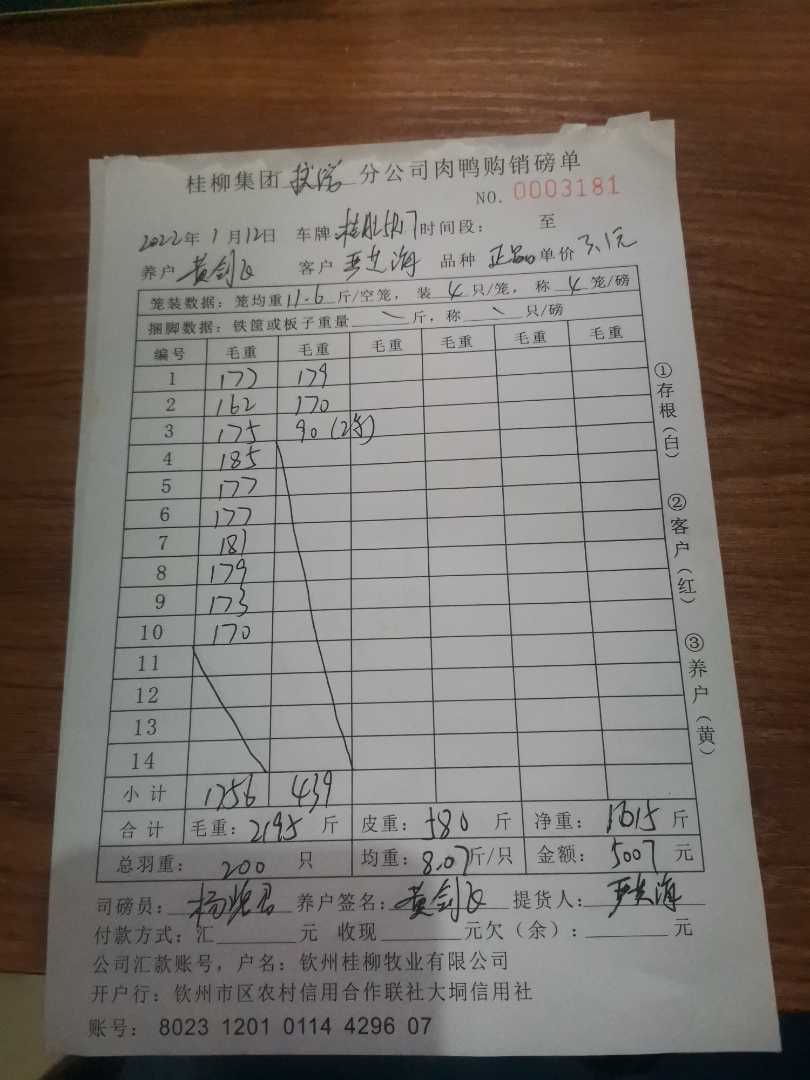 桂柳集团 分公司肉鸭购销磅单
NO. 0003181
2022年 1月12日 车牌 时间段： 至
养户 黄剑飞 客户 严其海 品种 正品 单价 3.1元
笼装数据：笼均重11.6斤/空笼，装 4 只/笼，称 4 笼/磅
捆脚数据：铁筐或板子重量 \ 斤，称 \ 只/磅
编号 毛重 毛重 毛重 毛重 毛重 毛重
1 177 179
2 162 170
3 175 90（2笼）
4 185
5 177
6 177
7 181
8 179
9 173
10 170
11
12
13
14
小计 1756 439
合计 毛重：2195 斤 皮重：580 斤 净重：1615 斤
总羽重： 200 只 均重：8.07斤/只 金额：5007 元
①存根（白）
②客户（红）
③养户（黄）
司磅员： 养户签名：黄剑飞 提货人：严其海
付款方式：汇 元 收现 元欠（余）： 元
公司汇款账号，户名：钦州桂柳牧业有限公司
开户行：钦州市区农村信用合作联社大垌信用社
账号：8023 1201 0114 4296 07